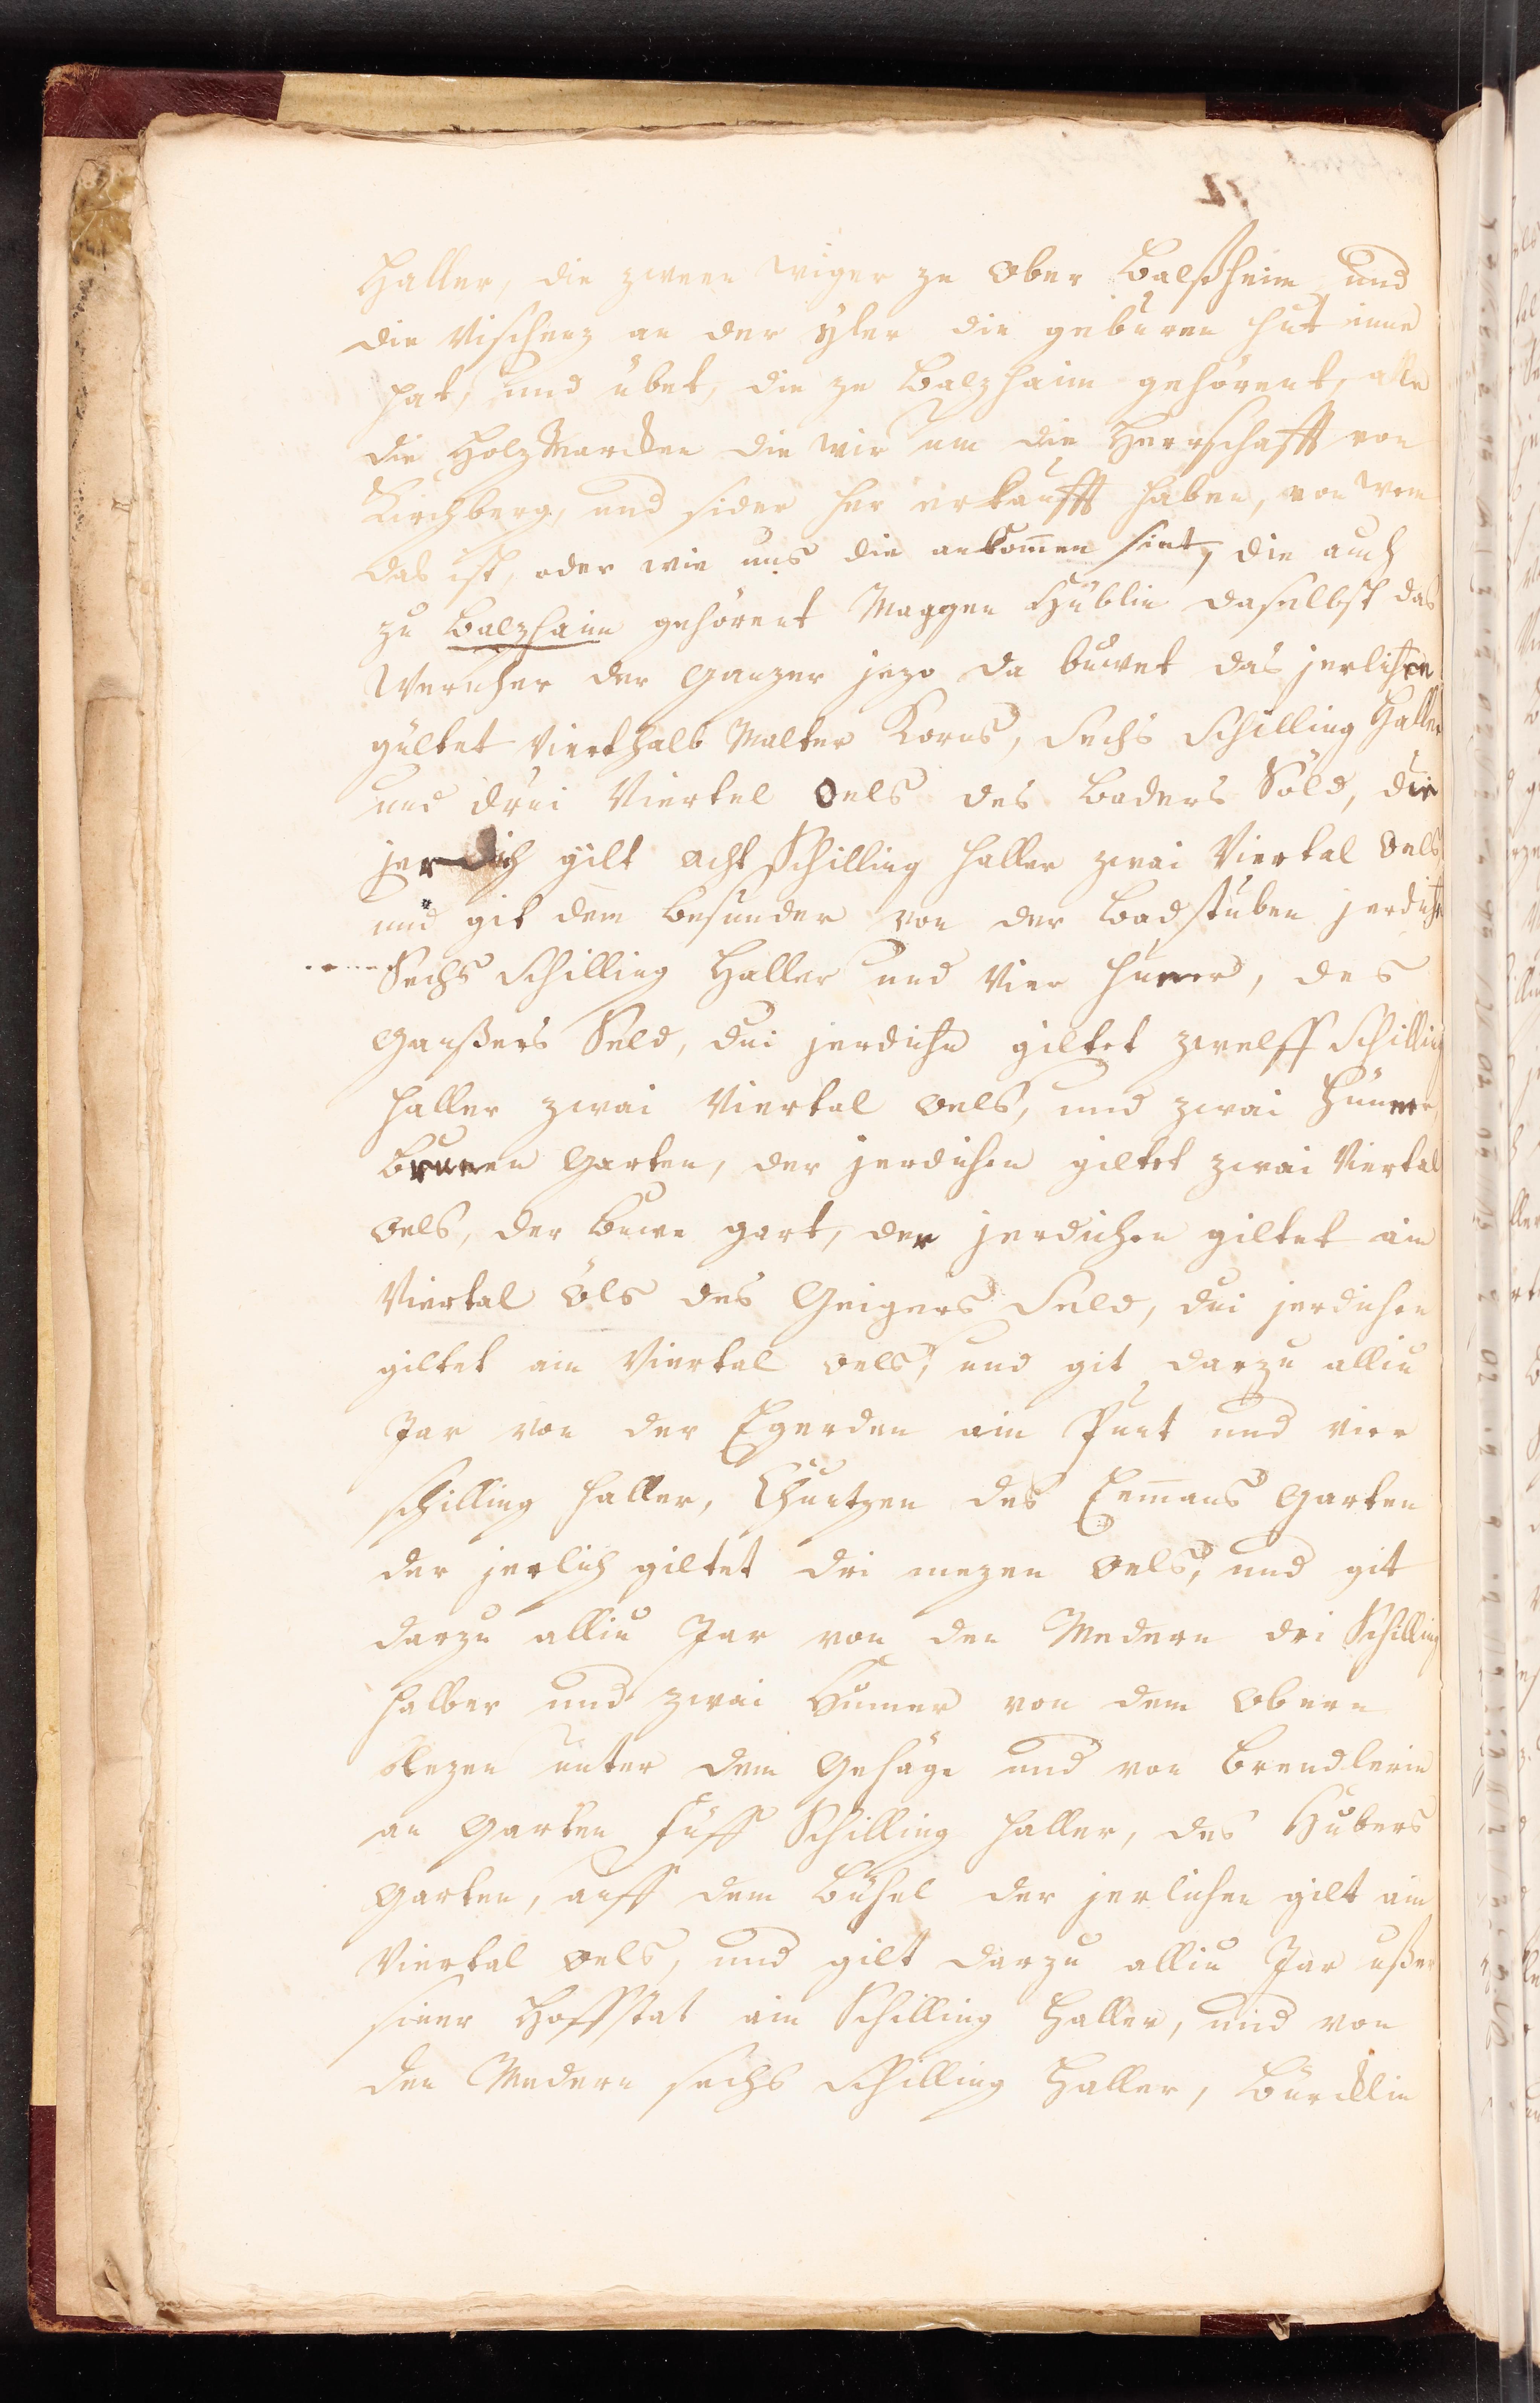 Haller, die zween wiger ze Ober Balßheim und
die Vischenz an der yler die gebüren hut inne
hat, und übet, die ze Balzhaim gehörent, alle
die Holz Marcken die wir um die Herrschafft von
Kirchberg, und sider her erkaufft haben, von wem
das ist, oder wie uns die ankom̄en sint, die auch
zu Balzhaim gehörent Maggen Hüblin daselbst das
Wernher der Ganzer jezo da buwet das jerlichen
gültet vierthalb Malter Korns, Sechs Schilling Haller
und drei Viertel Oels des Baders Söld, die
gilt acht Schilling haller zwai Viertal Oels
und git dem besunder von der Badstuben jerdich
Sechs Schilling Haller und Vier huner, des
Ganßers Seld, dui jerdiche giltet zwelff Schilling
haller zwai Viertal oels, und zwai Hüner,
Brunen Garten, der jerdichen giltet zwai Viertal
oels, der buwe gart, der jerdichen giltet ain
Viertal öls des Geigers Seld, dui jerdichen
giltet ain Viertal oels, und git darzu alliu
Jar von der Egerden ain Punt und vier
schilling haller, Chuntzen des Em̄ans Garten
der jerlich giltet dri mezen Oels, und git
darzu alliu Jar von den Medern dri Schilling
halber und zwai Huner von dem Obern
blezen unter dem Gehäge und von Brendlerin
an Garten fuff Schilling haller, des Hubers
Garten, auff dem Bühel der jerlichen gilt ain
Viertal oels, und gilt darzu alliu Jar ußer
siner Hoffstat ain Schilling Haller, und von
den Medern sechs Schilling Haller, Bürcklin